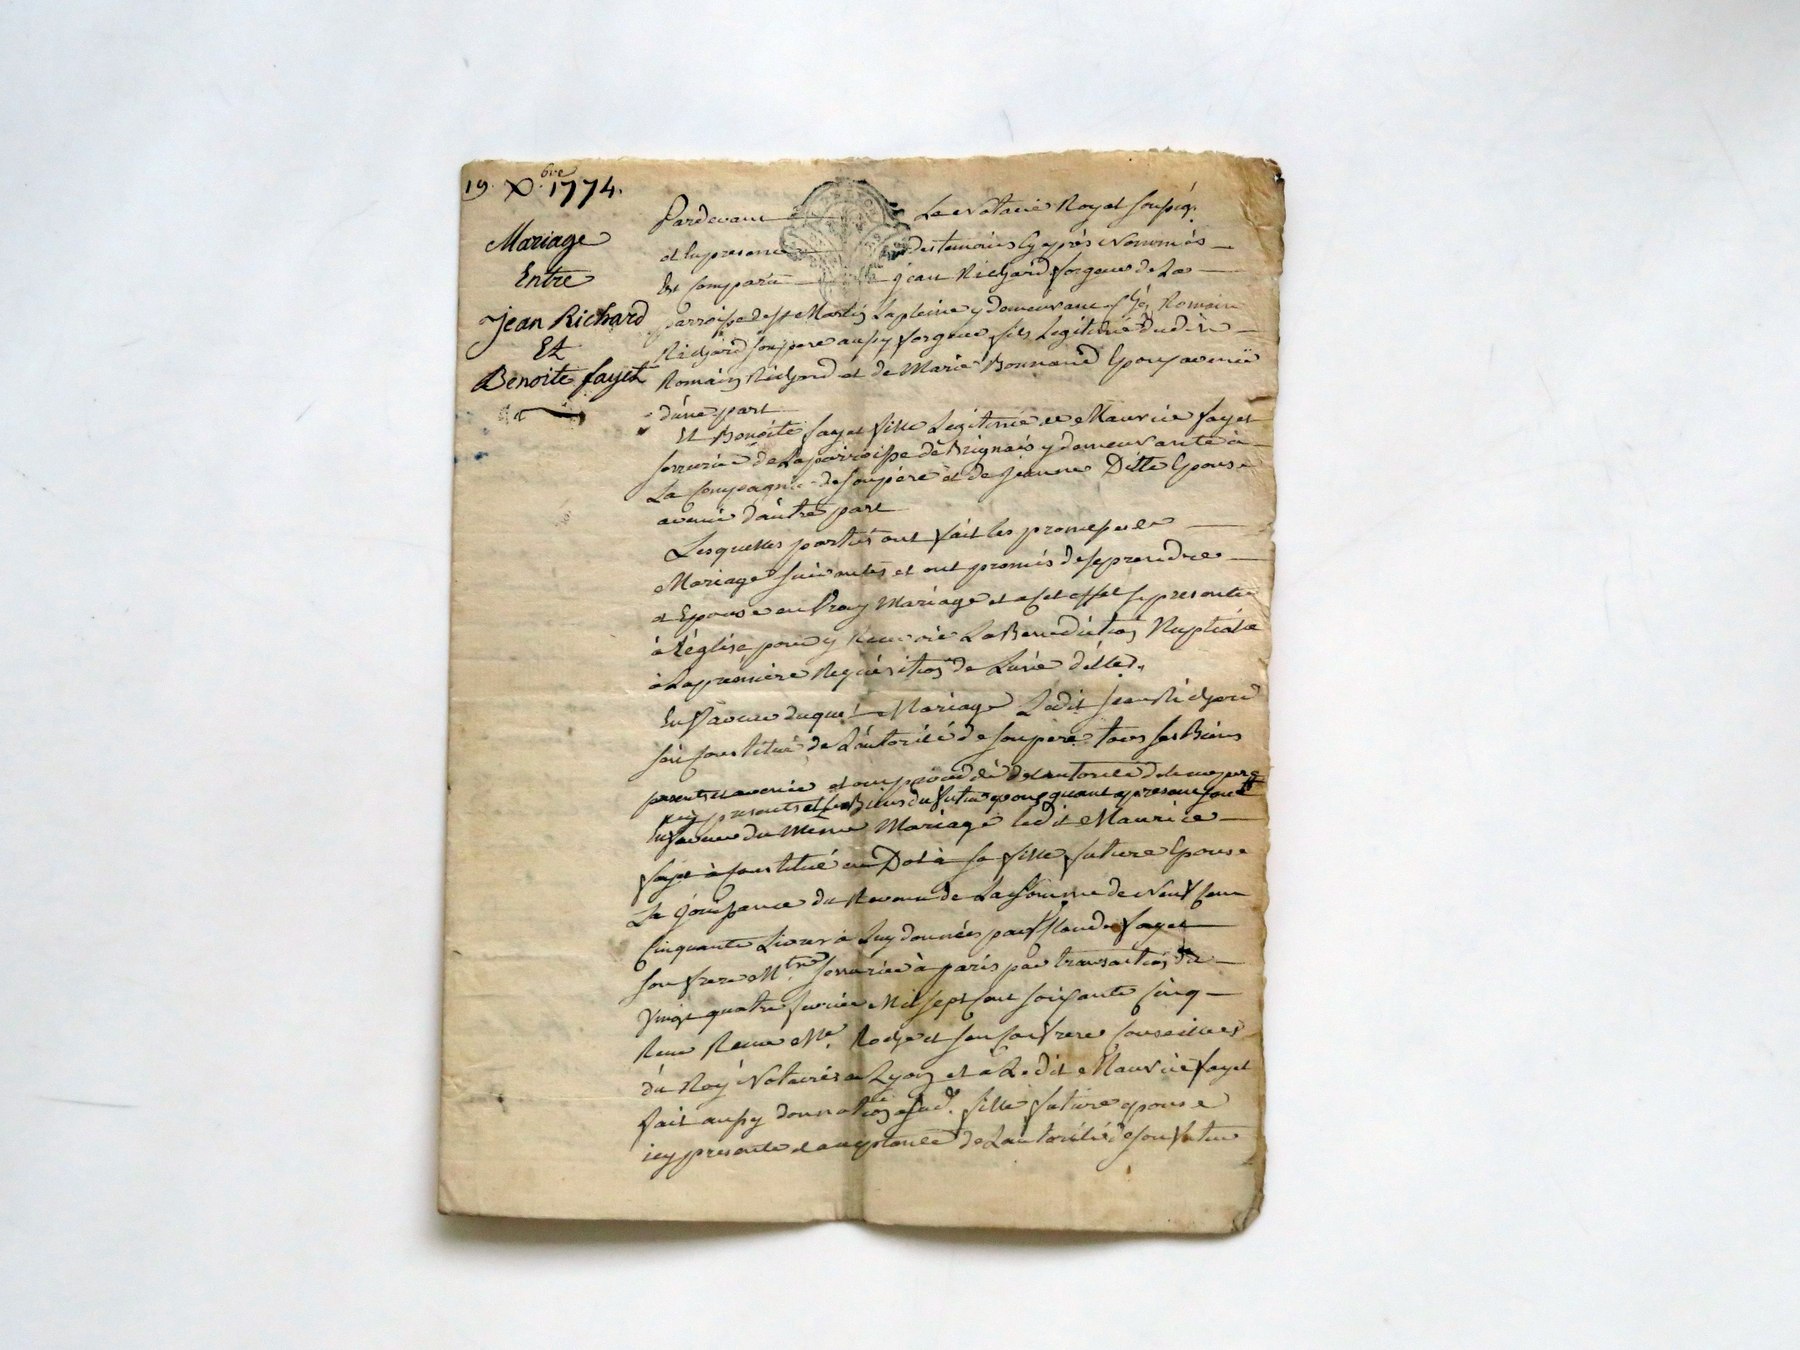 19. Xbre 1774.
Mariage
Entre
Jean Richard
Et
Benoite fayet
Pardevant Le Notaire Royal soussig.
et En presence des temoins Cy après Nommés
Est Comparu jean Richard forgeur de La
parroisse de st Martin La pleine y demeurant Romain
Richard son pere aussy forgeur fils Legitime dudit
Romain Richard et de Marie Bonnand Epoux avenir
d'une part
Et Benoite fayet fille Legitime de Maurice fayet
serrurier de La parroisse de Brignais y demeurante à
La Compagnie de son père et de jeanne Ditte Epouse
avenir d'autre part
Lesquelles parties ont fait les promesses de
Mariage suivantes et ont promis de se prendre
et Epouser en Vray Mariage et a cet effet se presenter
à L'église pour y recevoir La Benediction Nuptiale
à La première Requisition de L'une d'elles
En faveur duquel Mariage Ledit Jean Richard
s'est Constitué de L'autorité de son pere tous ses Biens
presents et avenir et
presents et Biens du futur epoux quant a present sont
En faveur du Même Mariage ledit Maurice
fayet à Constitué en Dot à sa fille future Epouse
La jouissance du Revenu de La somme de Neuf Cent
Cinquante Livres à Luy données par fayet
son frere Mtre serrurier à paris par transaction du
Vingt quatre Mil sept cent soixante Cinq
Recue Me. son Confrere Conseillers
du Roy Notaires a Lyon et à Ledit Maurice fayet
fait aussy donnation a sad. fille future epouse
icy presente et acceptante de L'autorité de son futur